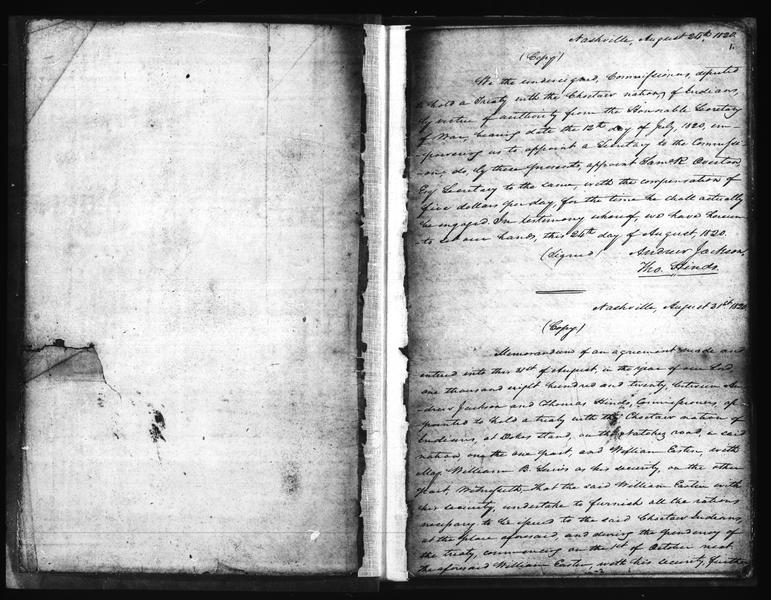 Nashville, August 24th 1820.
1.
(Copy)
We the undersigned, Commissioners, deputed
to hold a Treaty with the Choctaw nation, of Indians,
by virtue of authority from the Honorable Secretary
of War, bearing date the 12th day of July, 1820, em-
-powering us to appoint a Secretary to the Commissi-
-on, do, by these presents, appoint Saml R Overton
Esq Secretary to the same, with the compensation of
five dollars per day, for the time he shall actually
be engaged. In testimony whereof, we have hereun-
-to set our hands, this 24th day of August, 1820.
(Signed Andrew Jackson,
Tho. Hinds.
Nashville, August 31st 1820
(Copy)
Memorandum of an agreement made and
entered into this 31st of August, in the year of our Lord,
one thousand eight hundred and twenty, between An-
-drew Jackson and Thomas Hinds, Commissioners, ap-
pointed to hold a treaty with the Choctaw nation of
Indians, at Dokes Stand, on the Natchez road, a said
nation on the one part, and William Easten with
Maj. William B. Lewis as his security, on the other
part. Witnesseth, that the said William Easten with
his security, undertake to furnish all the rations
necessary to be issued to the said Choctaw Indians,
at the place aforesaid, and during the pendency of
the treaty, commencing on the 1st of October next.
The aforesaid William Easten, with his security, further